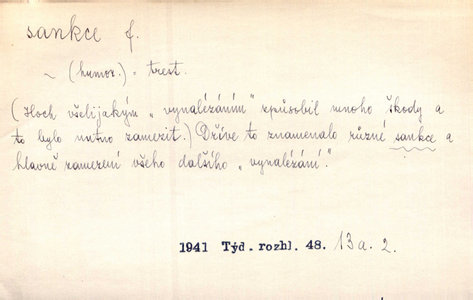 sankce f.
~ (humor.) = trest.
(Hoch všelijakým „vynalézáním" způsobil mnoho škody a
to bylo nutno zamezit.) Dříve to znamenalo různé sankce a
hlavně zamezení všeho dalšího „vynalézání".
1941 Týd. rozhl. 48. 13a. 2.